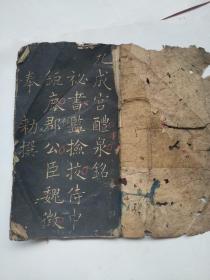 九成宫醴泉銘
祕書監檢挍侍中
鉅鹿郡公臣魏徵
奉　勑撰